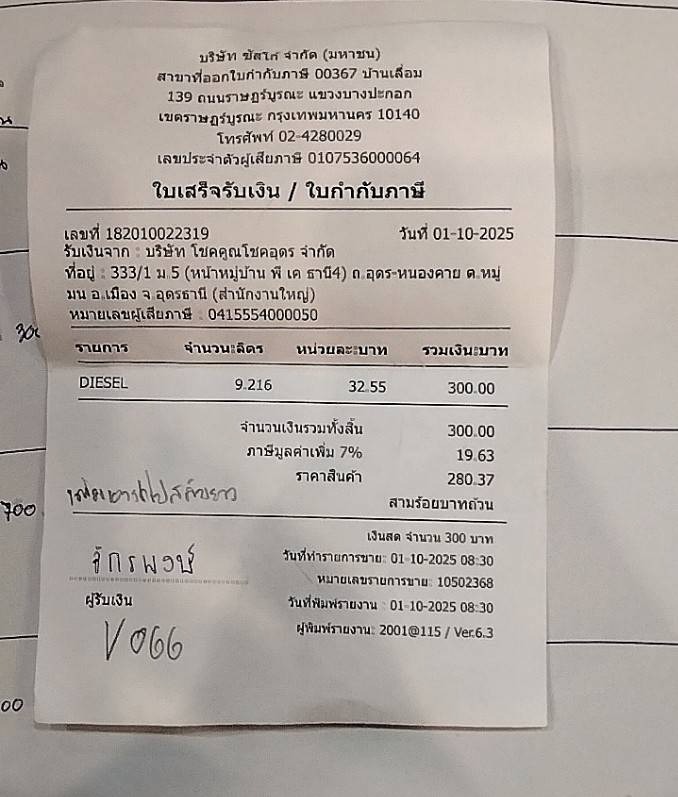 บริษัท ซัสโก้ จำกัด (มหาชน)
สาขาที่ออกใบกำกับภาษี 00367 บ้านเลื่อม
139 ถนนราษฎร์บูรณะ แขวงบางปะกอก
เขตราษฎร์บูรณะ กรุงเทพมหานคร 10140
โทรศัพท์ 02-4280029
เลขประจำตัวผู้เสียภาษี 0107536000064
ใบเสร็จรับเงิน / ใบกำกับภาษี
เลขที่ 182010022319 วันที่ 01-10-2025
รับเงินจาก : บริษัท โชคคูณโชคอุดร จำกัด
ที่อยู่ : 333/1 ม.5 (หน้าหมู่บ้าน พี เค ธานี4) ถ.อุดร-หนองคาย ต.หมู
มน อ.เมือง จ.อุดรธานี (สำนักงานใหญ่)
หมายเลขผู้เสียภาษี : 0415554000050
รายการ จำนวน:ลิตร หน่วยละ:บาท รวมเงิน:บาท
DIESEL 9.216 32.55 300.00
จำนวนเงินรวมทั้งสิ้น 300.00
ภาษีมูลค่าเพิ่ม 7% 19.63
ราคาสินค้า 280.37
สามร้อยบาทถ้วน
เงินสด จำนวน 300 บาท
จักรพงษ์
วันที่ทำรายการขาย: 01-10-2025 08:30
หมายเลขรายการขาย: 10502368
ผู้รับเงิน
วันที่พิมพ์รายงาน : 01-10-2025 08:30
ผู้พิมพ์รายงาน: 2001@115 / Ver.6.3
V066
700
00